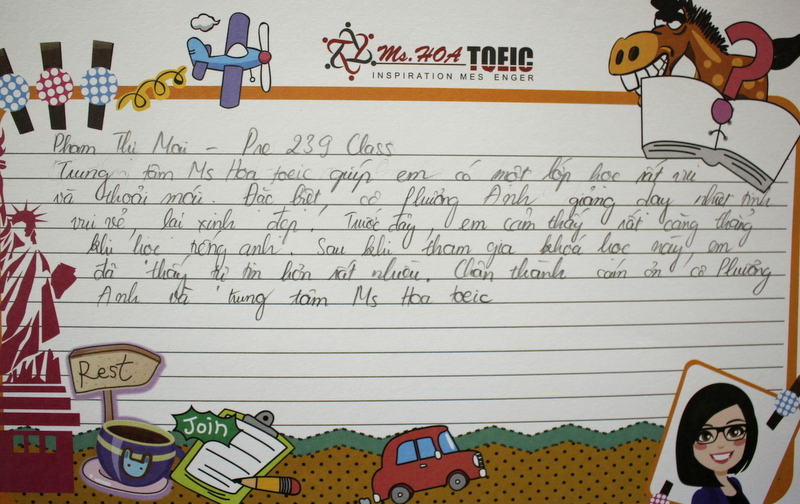 Ms. HOA TOEIC
INSPIRATION MES ENGER
Phạm Thị Mai - Pre 239 Class
Trung tâm Ms Hoa toeic giúp em có một lớp học rất vui
và thoải mái. Đặc biệt, cô Phương Anh giảng dạy nhiệt tình
vui vẻ, lại xinh đẹp. Trước đây, em cảm thấy rất căng thẳng
khi học tiếng anh. Sau khi tham gia khóa học này, em
đã thấy tự tin hơn rất nhiều. Chân thành cảm ơn cô Phương
Anh và trung tâm Ms Hoa toeic
Rest
Join